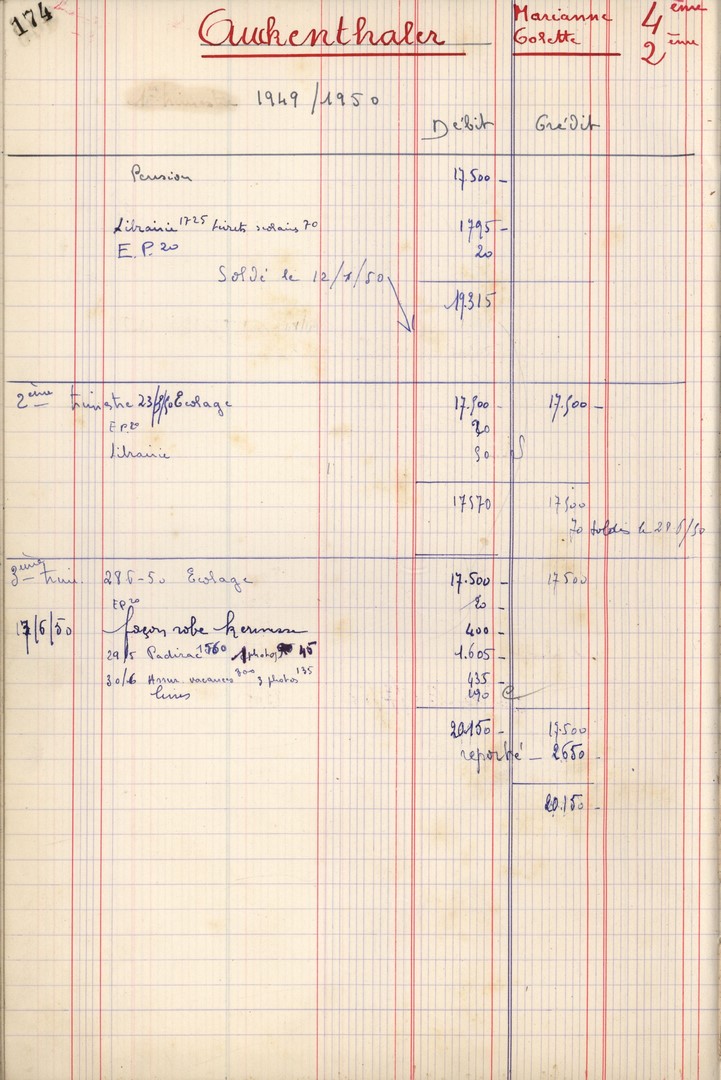 174
Auckenthaler Marianne 4ème
Colette 2ème
1949/1950
Débit Crédit
Pension 17.500 -
Librairie 1725 livrets scolaires 70 1795 -
E.P. 20 20
Soldé le 12/1/50
19.315
2ème trimestre Ecolage 17.500 - 17.500 -
EP 20 20
Librairie 50
17570 17500
70 soldés le 28.6/50
3ème trim. 28 6-50 Ecolage 17.500 - 17500
EP 20 20 -
17/6/50 façon robe kermesse 400 -
29/5 Padirac 1560 photos 45 1.605 -
30/6 Assur. vacances 300 3 photos 135 435 -
livres 190
20.150 - 17.500
reporté - 2650 -
20.150 -